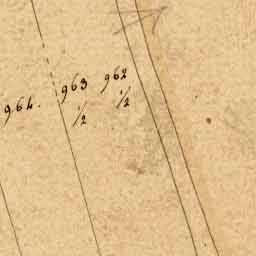 964.
963
1/2
962
1/2